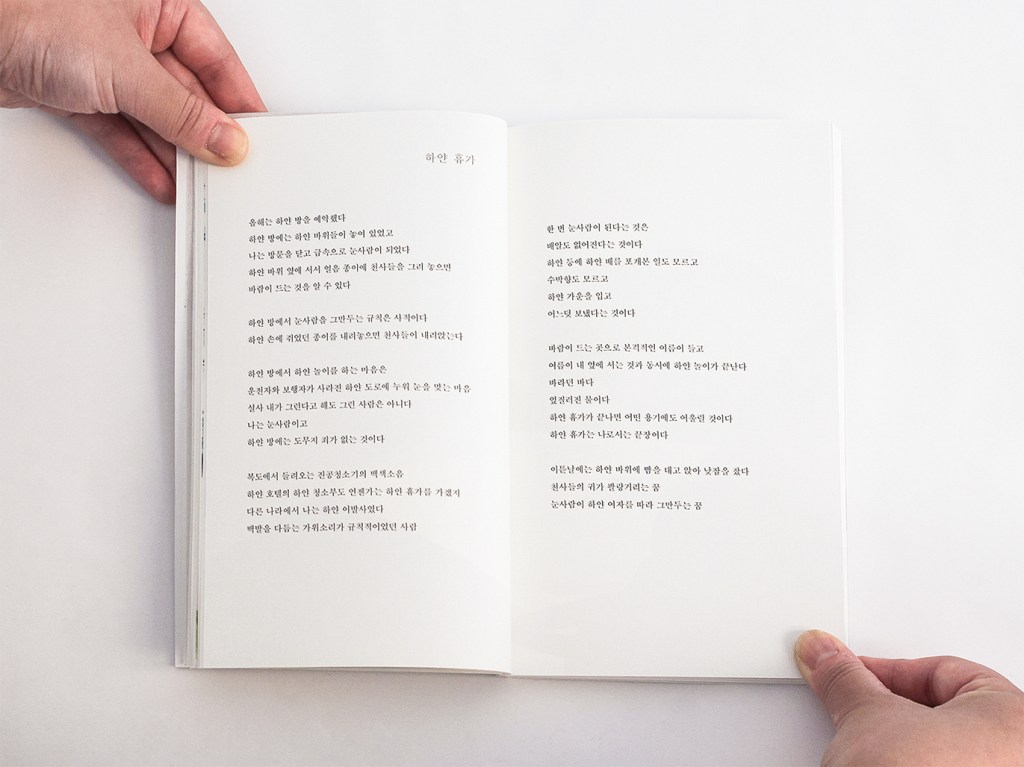 하얀 휴가
올해는 하얀 방을 예약했다
하얀 방에는 하얀 바위들이 놓여 있었고
나는 방문을 닫고 급속으로 눈사람이 되었다
하얀 바위 옆에 서서 얼음 종이에 천사들을 그려 놓으면
바람이 드는 것을 알 수 있다
하얀 방에서 눈사람을 그만두는 규칙은 사적이다
하얀 손에 쥐었던 종이를 내려놓으면 천사들이 내려앉는다
하얀 방에서 하얀 놀이를 하는 마음은
운전자와 보행자가 사라진 하얀 도로에 누워 눈을 맞는 마음
설사 내가 그런다고 해도 그런 사람은 아니다
나는 눈사람이고
하얀 방에는 도무지 죄가 없는 것이다
복도에서 들려오는 진공청소기의 백색소음
하얀 호텔의 하얀 청소부도 언젠가는 하얀 휴가를 가겠지
다른 나라에서 나는 하얀 이발사였다
백발을 다듬는 가위소리가 규칙적이었던 사람
한 번 눈사람이 된다는 것은
배알도 없어진다는 것이다
하얀 등에 하얀 배를 포개본 일도 모르고
수박향도 모르고
하얀 가운을 입고
어느덧 보냈다는 것이다
바람이 드는 곳으로 본격적인 여름이 들고
여름이 내 옆에 서는 것과 동시에 하얀 놀이가 끝난다
바라던 바다
엎질러진 물이다
하얀 휴가가 끝나면 어떤 용기에도 어울릴 것이다
하얀 휴가는 나로서는 끝장이다
이튿날에는 하얀 바위에 뺨을 대고 앉아 낮잠을 잤다
천사들의 귀가 팔랑거리는 꿈
눈사람이 하얀 여자를 따라 그만두는 꿈